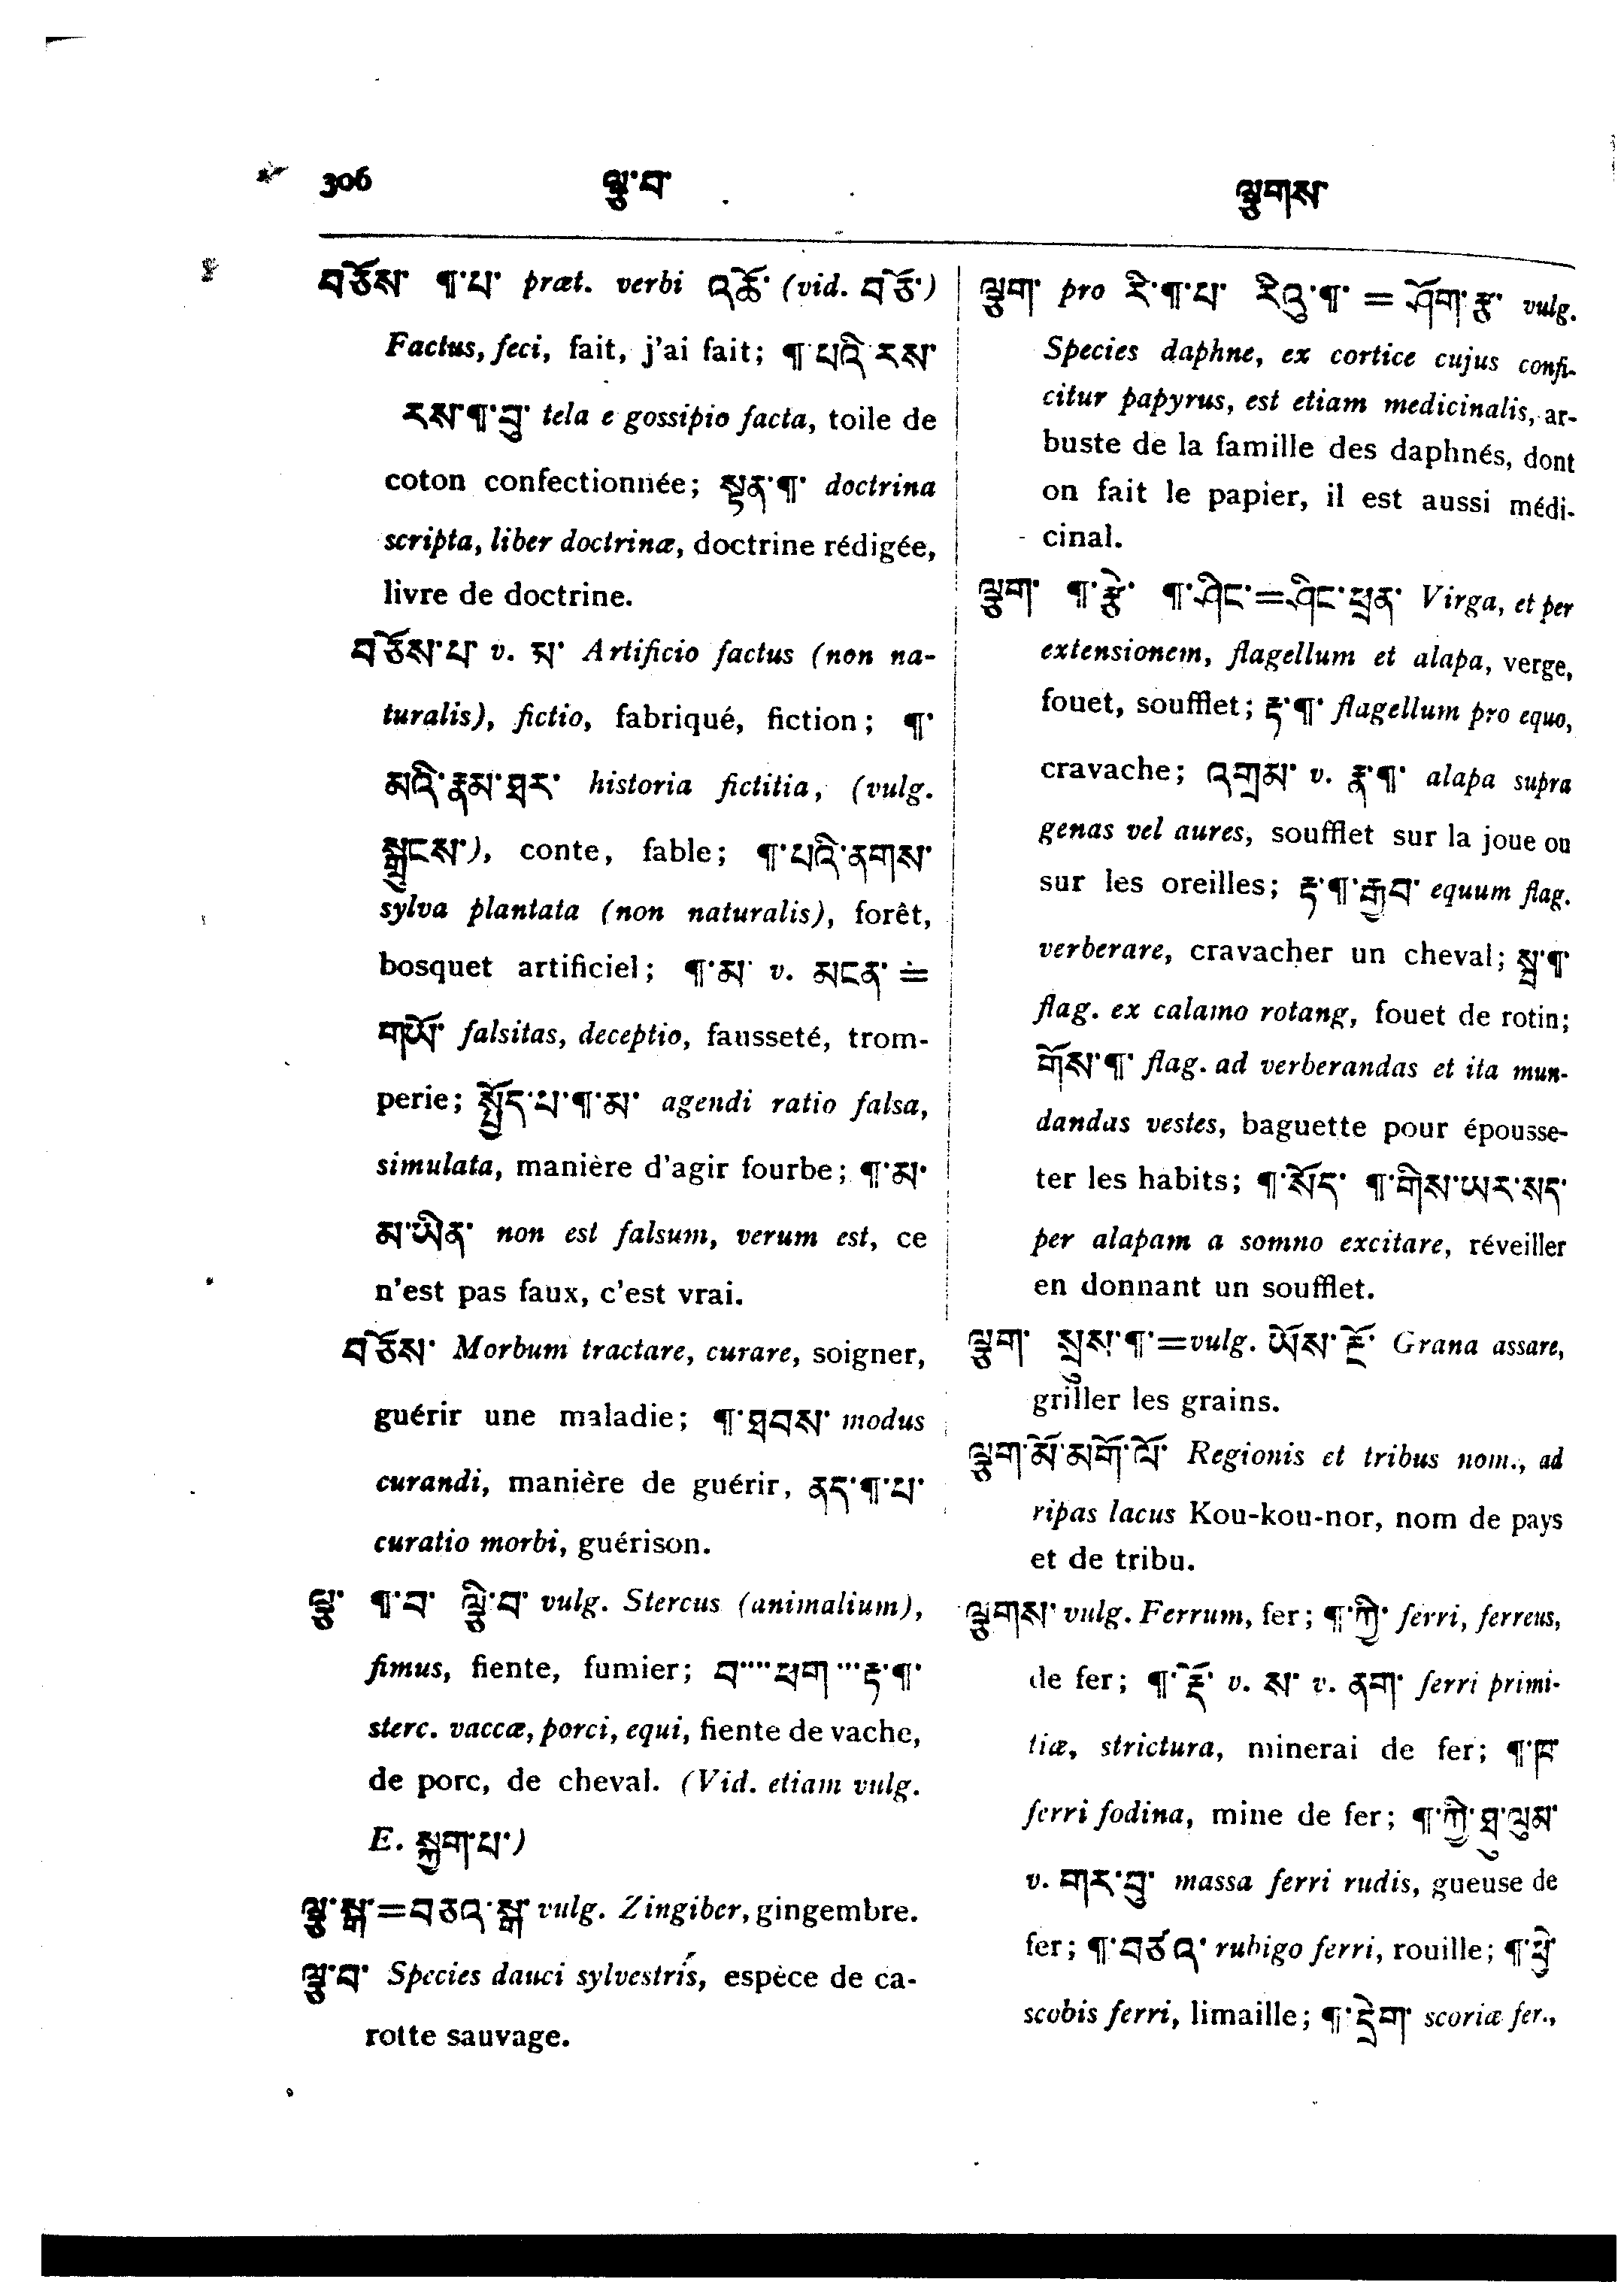 306 ལྕུ་བ་ ལྕུགས་
བཅོས་ ¶་པ་ præt. verbi འཆོ་ (vid. བཅོ་)
Factus, feci, fait, j'ai fait; ¶་པའི་རས་
རས་¶་བུ་ tela e gossipio facta, toile de
coton confectionnée; སྟན་¶་ doctrina
scripta, liber doctrinæ, doctrine rédigée,
livre de doctrine.
བཅོས་པ་ v. མ་ Artificio factus (non na-
turalis), fictio, fabriqué, fiction; ¶་
མའི་རྣམ་ཐར་ historia fictitia, (vulg.
སྒྲུངས་), conte, fable; ¶་པའི་ནགས་
sylva plantata (non naturalis), forêt,
bosquet artificiel; ¶་མ་ v. མངན་ =
གཡོ་ falsitas, deceptio, fausseté, trom-
perie; སྤྱོད་པ་¶་མ་ agendi ratio falsa,
simulata, manière d'agir fourbe; ¶་མ་
མ་ཡིན་ non est falsum, verum est, ce
n'est pas faux, c'est vrai.
བཅོས་ Morbum tractare, curare, soigner,
guérir une maladie; ¶་ཐབས་ modus
curandi, manière de guérir, ནད་¶་པ་
curatio morbi, guérison.
ལྕུ་ ¶་བ་ ལྕི་བ་ vulg. Stercus (animalium),
fimus, fiente, fumier; བ་... ཕག་... རྟ་¶་
sterc. vaccæ, porci, equi, fiente de vache,
de porc, de cheval. (Vid. etiam vulg.
E. སྐྱག་པ་)
ལྕུ་སྒ་=བཅའ་སྒ་ vulg. Zingiber, gingembre.
ལྕུ་བ་ Species dauci sylvestris, espèce de ca-
rotte sauvage.
ལྕུག་ pro རེ་¶་པ་ རེའུ་¶་ = ཤོག་རྩ་ vulg.
Species daphne, ex cortice cujus confi-
citur papyrus, est etiam medicinalis, ar-
buste de la famille des daphnés, dont
on fait le papier, il est aussi médi-
cinal.
ལྕུག་ ¶་རྩེ་ ¶་ཤིང་=ཤིང་ཕྲན་ Virga, et per
extensionem, flagellum et alapa, verge,
fouet, soufflet; རྟ་¶་ flagellum pro equo,
cravache; འགྲམ་ v. རྣ་¶་ alapa supra
genas vel aures, soufflet sur la joue ou
sur les oreilles; རྟ་¶་རྒྱབ་ equum flag.
verberare, cravacher un cheval; སྦ་¶་
flag. ex calamo rotang, fouet de rotin;
གོས་¶་ flag. ad verberandas et ita mun-
dandas vestes, baguette pour épousse-
ter les habits; ¶་སོད་ ¶་གིས་ཡར་སད་
per alapam a somno excitare, réveiller
en donnant un soufflet.
ལྕུག་ སྲུས་¶་=vulg. ཡོས་རྔོ་ Grana assare,
griller les grains.
ལྕུག་མོ་མགོ་ལོ་ Regionis et tribus nom., ad
ripas lacus Kou-kou-nor, nom de pays
et de tribu.
ལྕུགས་ vulg. Ferrum, fer; ¶་ཀྱི་ ferri, ferreus,
de fer; ¶་རྡོ་ v. ས་ v. ནག་ ferri primi-
tiæ, strictura, minerai de fer; ¶་ཁ་
ferri fodina, mine de fer; ¶་ཀྱི་ཐུ་ལུམ་
v. གར་བུ་ massa ferri rudis, gueuse de
fer; ¶་བཙའ་ rubigo ferri, rouille; ¶་ཕྱེ་
scobis ferri, limaille; ¶་དྲེག་ scoriæ fer.,